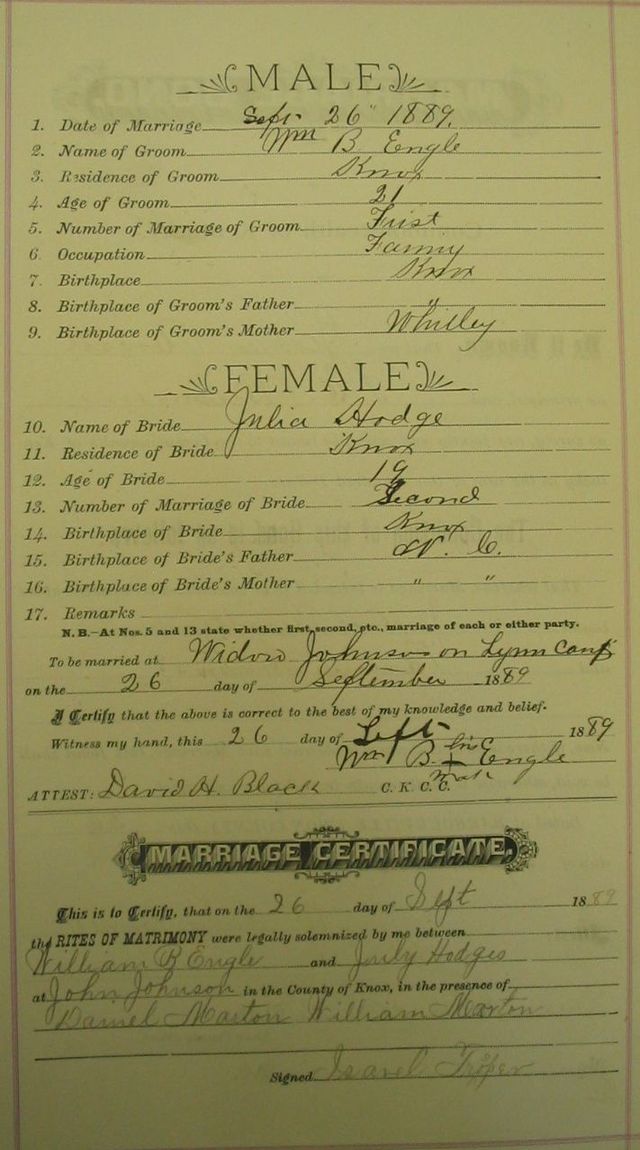 MALE
1. Date of Marriage Sept. 26" 1889.
2. Name of Groom Wm B Engle
3. Residence of Groom Knox
4. Age of Groom 21
5. Number of Marriage of Groom First
6. Occupation Farming
7. Birthplace Knox
8. Birthplace of Groom's Father "
9. Birthplace of Groom's Mother Whitley
FEMALE
10. Name of Bride Julia Hodge
11. Residence of Bride Knox
12. Age of Bride 19
13. Number of Marriage of Bride Second
14. Birthplace of Bride Knox
15. Birthplace of Bride's Father N. C.
16. Birthplace of Bride's Mother " "
17. Remarks
N. B.—At Nos. 5 and 13 state whether first, second, etc., marriage of each or either party.
To be married at Widow Johnson on Lynn Camp
on the 26 day of September 1889
I Certify that the above is correct to the best of my knowledge and belief.
Witness my hand, this 26 day of Sept 1889
Wm B. his + mark Engle
ATTEST: David H. Black C. K. C. C.
MARRIAGE CERTIFICATE.
This is to Certify, that on the 26 day of Sept 1889
the RITES OF MATRIMONY were legally solemnized by me between
William B Engle and July Hodges
at John Johnson in the County of Knox, in the presence of
Daniel Marton William Marton
Signed